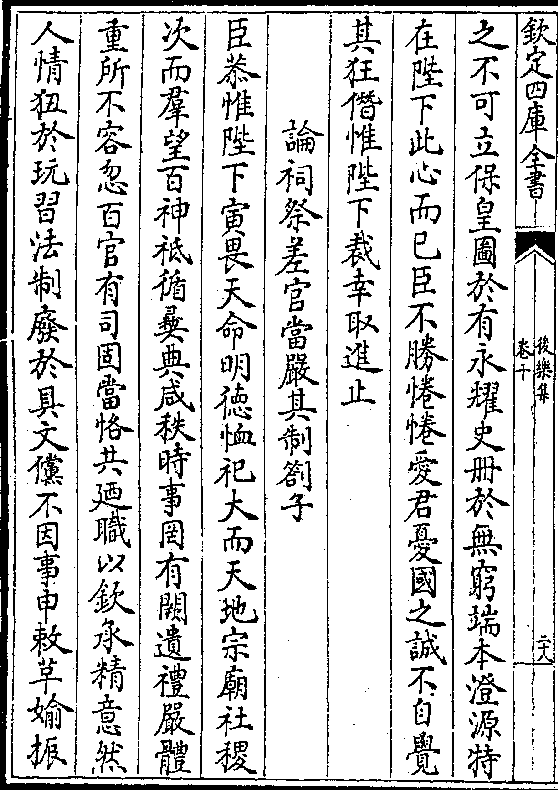 欽定四庫全書
後樂集
卷十
二十八
之不可立保皇圖於有永耀史冊於無窮端本澄源特
在陛下此心而已臣不勝惓惓愛君憂國之誠不自覺
其狂僭惟陛下裁幸取進止
論祠祭差官當嚴其制劄子
臣恭惟陛下寅畏天命明德恤祀大而天地宗廟社稷
次而羣望百神祗循彞典咸秩時事罔有闕遺禮嚴體
重所不容忽百官有司固當恪共廼職以欽承精意然
人情狃於玩習法制廢於具文儻不因事申敕草媮振